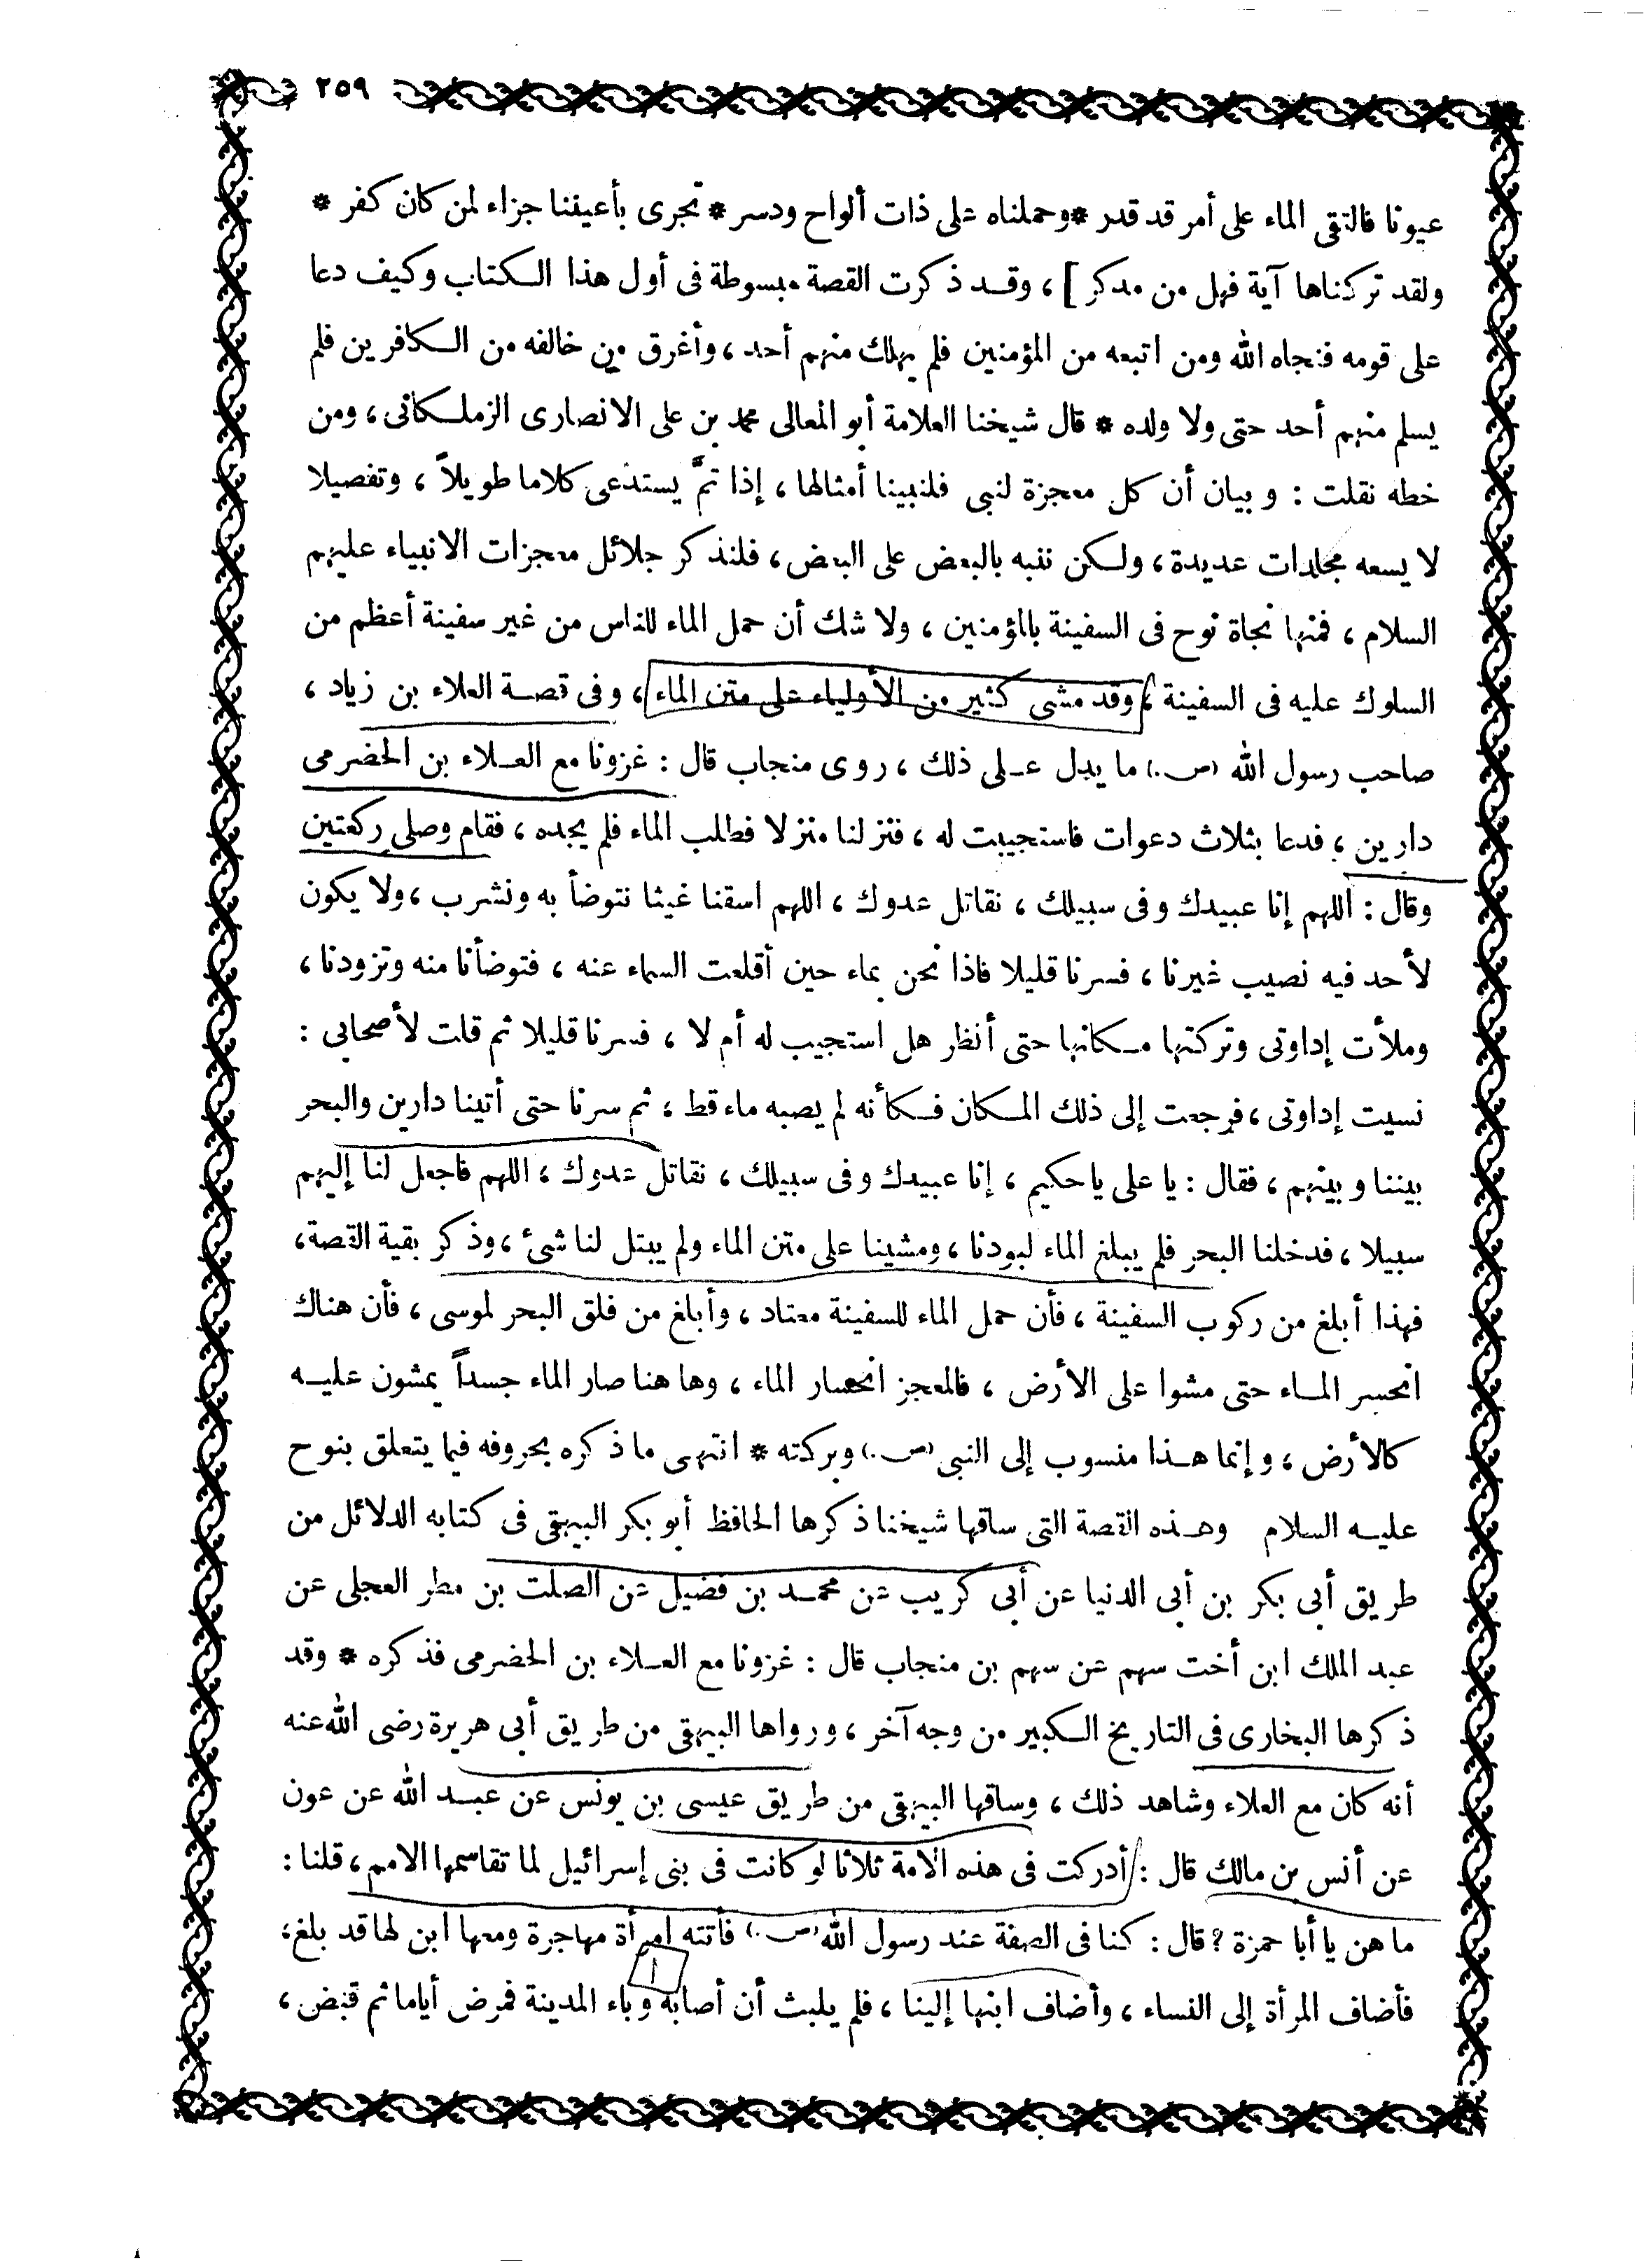 ٢٥٩
عيونا فالتقى الماء على أمر قد قدر * وحملناه على ذات ألواح ودسر * تجرى بأعيننا جزاء لمن كان كفر *
ولقد تركناها آية فهل من مدكر ] ، وقد ذكرت القصة مبسوطة فى أول هذا الكتاب وكيف دعا
على قومه فنجاه الله ومن اتبعه من المؤمنين فلم يهلك منهم أحد ، وأغرق من خالفه من الكافرين فلم
يسلم منهم أحد حتى ولا ولده * قال شيخنا العلامة أبو المعالى محمد بن على الانصارى الزملكانى ، ومن
خطه نقلت : وبيان أن كل معجزة لنبى فلنبينا أمثالها ، إذا تمَّ يستدعى كلاما طويلاً ، وتفصيلا
لا يسعه مجلدات عديدة ، ولكن ننبه بالبعض على البعض ، فلنذكر جلائل معجزات الانبياء عليهم
السلام ، فمنها نجاة نوح فى السفينة بالمؤمنين ، ولا شك أن حمل الماء للناس من غير سفينة أعظم من
السلوك عليه فى السفينة ، وقد مشى كثير من الأولياء على متن الماء ، وفى قصة العلاء بن زياد ،
صاحب رسول الله (ص.) ما يدل على ذلك ، روى منجاب قال : غزونا مع العلاء بن الحضرمى
دارين ، فدعا بثلاث دعوات فاستجيبت له ، فنزلنا منزلا فطلب الماء فلم يجده ، فقام وصلى ركعتين
وقال : اللهم إنا عبيدك وفى سبيلك ، نقاتل عدوك ، اللهم اسقنا غيثا نتوضأ به ونشرب ، ولا يكون
لأحد فيه نصيب غيرنا ، فسرنا قليلا فاذا نحن بماء حين أقلعت السماء عنه ، فتوضأنا منه وتزودنا ،
وملأت إداوتى وتركتها مكانها حتى أنظر هل استجيب له أم لا ، فسرنا قليلا ثم قلت لأصحابى :
نسيت إداوتى ، فرجعت إلى ذلك المكان فكأنه لم يصبه ماء قط ، ثم سرنا حتى أتينا دارين والبحر
بيننا وبينهم ، فقال : يا على يا حكيم ، إنا عبيدك وفى سبيلك ، نقاتل عدوك ، اللهم فاجعل لنا إليهم
سبيلا ، فدخلنا البحر فلم يبلغ الماء لبودنا ، ومشينا على متن الماء ولم يبتل لنا شىء ، وذكر بقية القصة ،
فهذا أبلغ من ركوب السفينة ، فأن حمل الماء للسفينة معتاد ، وأبلغ من فلق البحر لموسى ، فأن هناك
انحسر الماء حتى مشوا على الأرض ، فالمعجز انحسار الماء ، وها هنا صار الماء جسداً يمشون عليه
كالأرض ، وإنما هذا منسوب إلى النبى (ص.) وبركته * انتهى ما ذكره بحروفه فيما يتعلق بنوح
عليه السلام وهذه القصة التى ساقها شيخنا ذكرها الحافظ أبو بكر البيهقى فى كتابه الدلائل من
طريق أبى بكر بن أبى الدنيا عن أبى كريب عن محمد بن فضيل عن الصلت بن مطر العجلى عن
عبد الملك ابن أخت سهم عن سهم بن منجاب قال : غزونا مع العلاء بن الحضرمى فذكره * وقد
ذكرها البخارى فى التاريخ الكبير من وجه آخر ، ورواها البيهقى من طريق أبى هريرة رضى الله عنه
أنه كان مع العلاء وشاهد ذلك ، وساقها البيهقى من طريق عيسى بن يونس عن عبد الله عن عون
عن أنس بن مالك قال : أدركت فى هذه الامة ثلاثا لو كانت فى بنى إسرائيل لما تقاسمها الامم ، قلنا :
ما هن يا أبا حمزة ? قال : كنا فى الصفة عند رسول الله (ص.) فأتته امرأة مهاجرة ومعها ابن لها قد بلغ ،
فأضاف المرأة إلى النساء ، وأضاف ابنها إلينا ، فلم يلبث أن أصابه وباء المدينة فمرض أياما ثم قبض ،